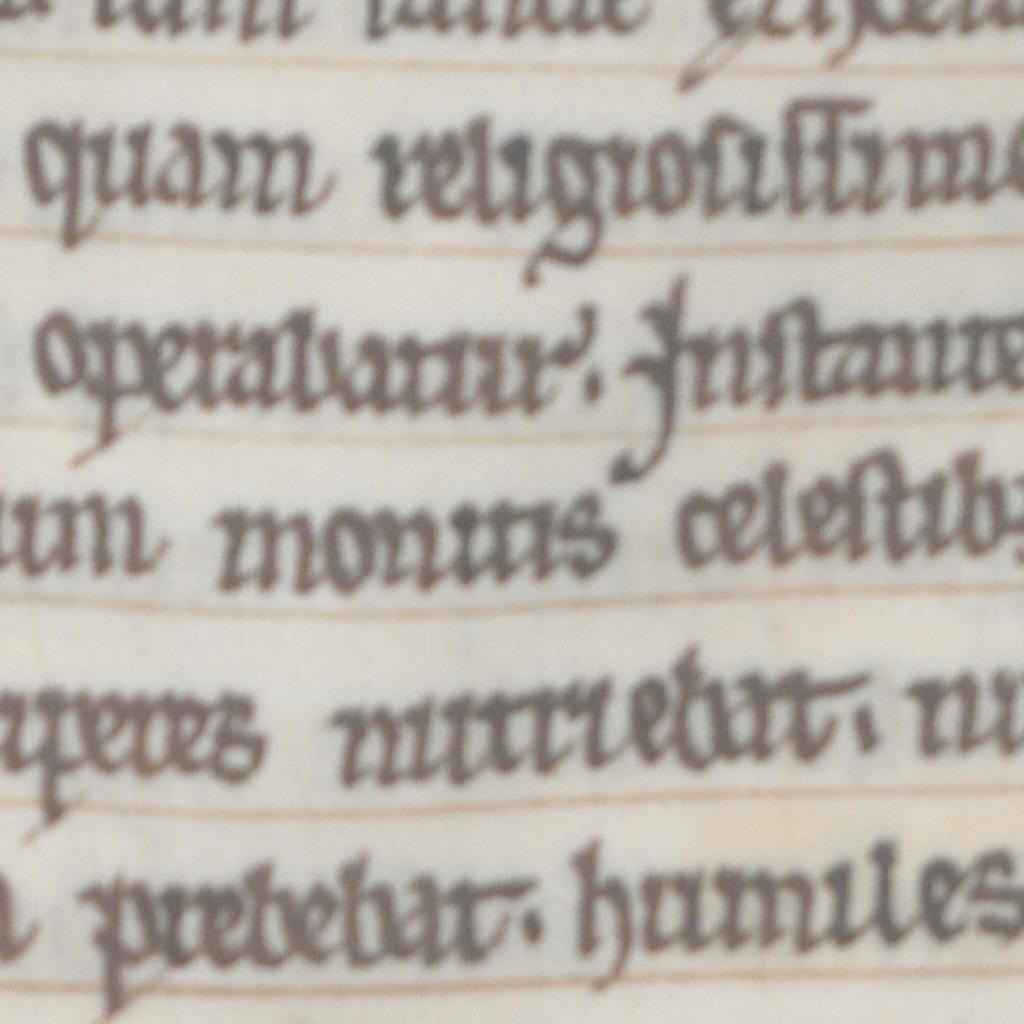 quam religiosissime
operabatur. Instante
um monitis celestib;
nutriebat. nu
prebebat. humiles